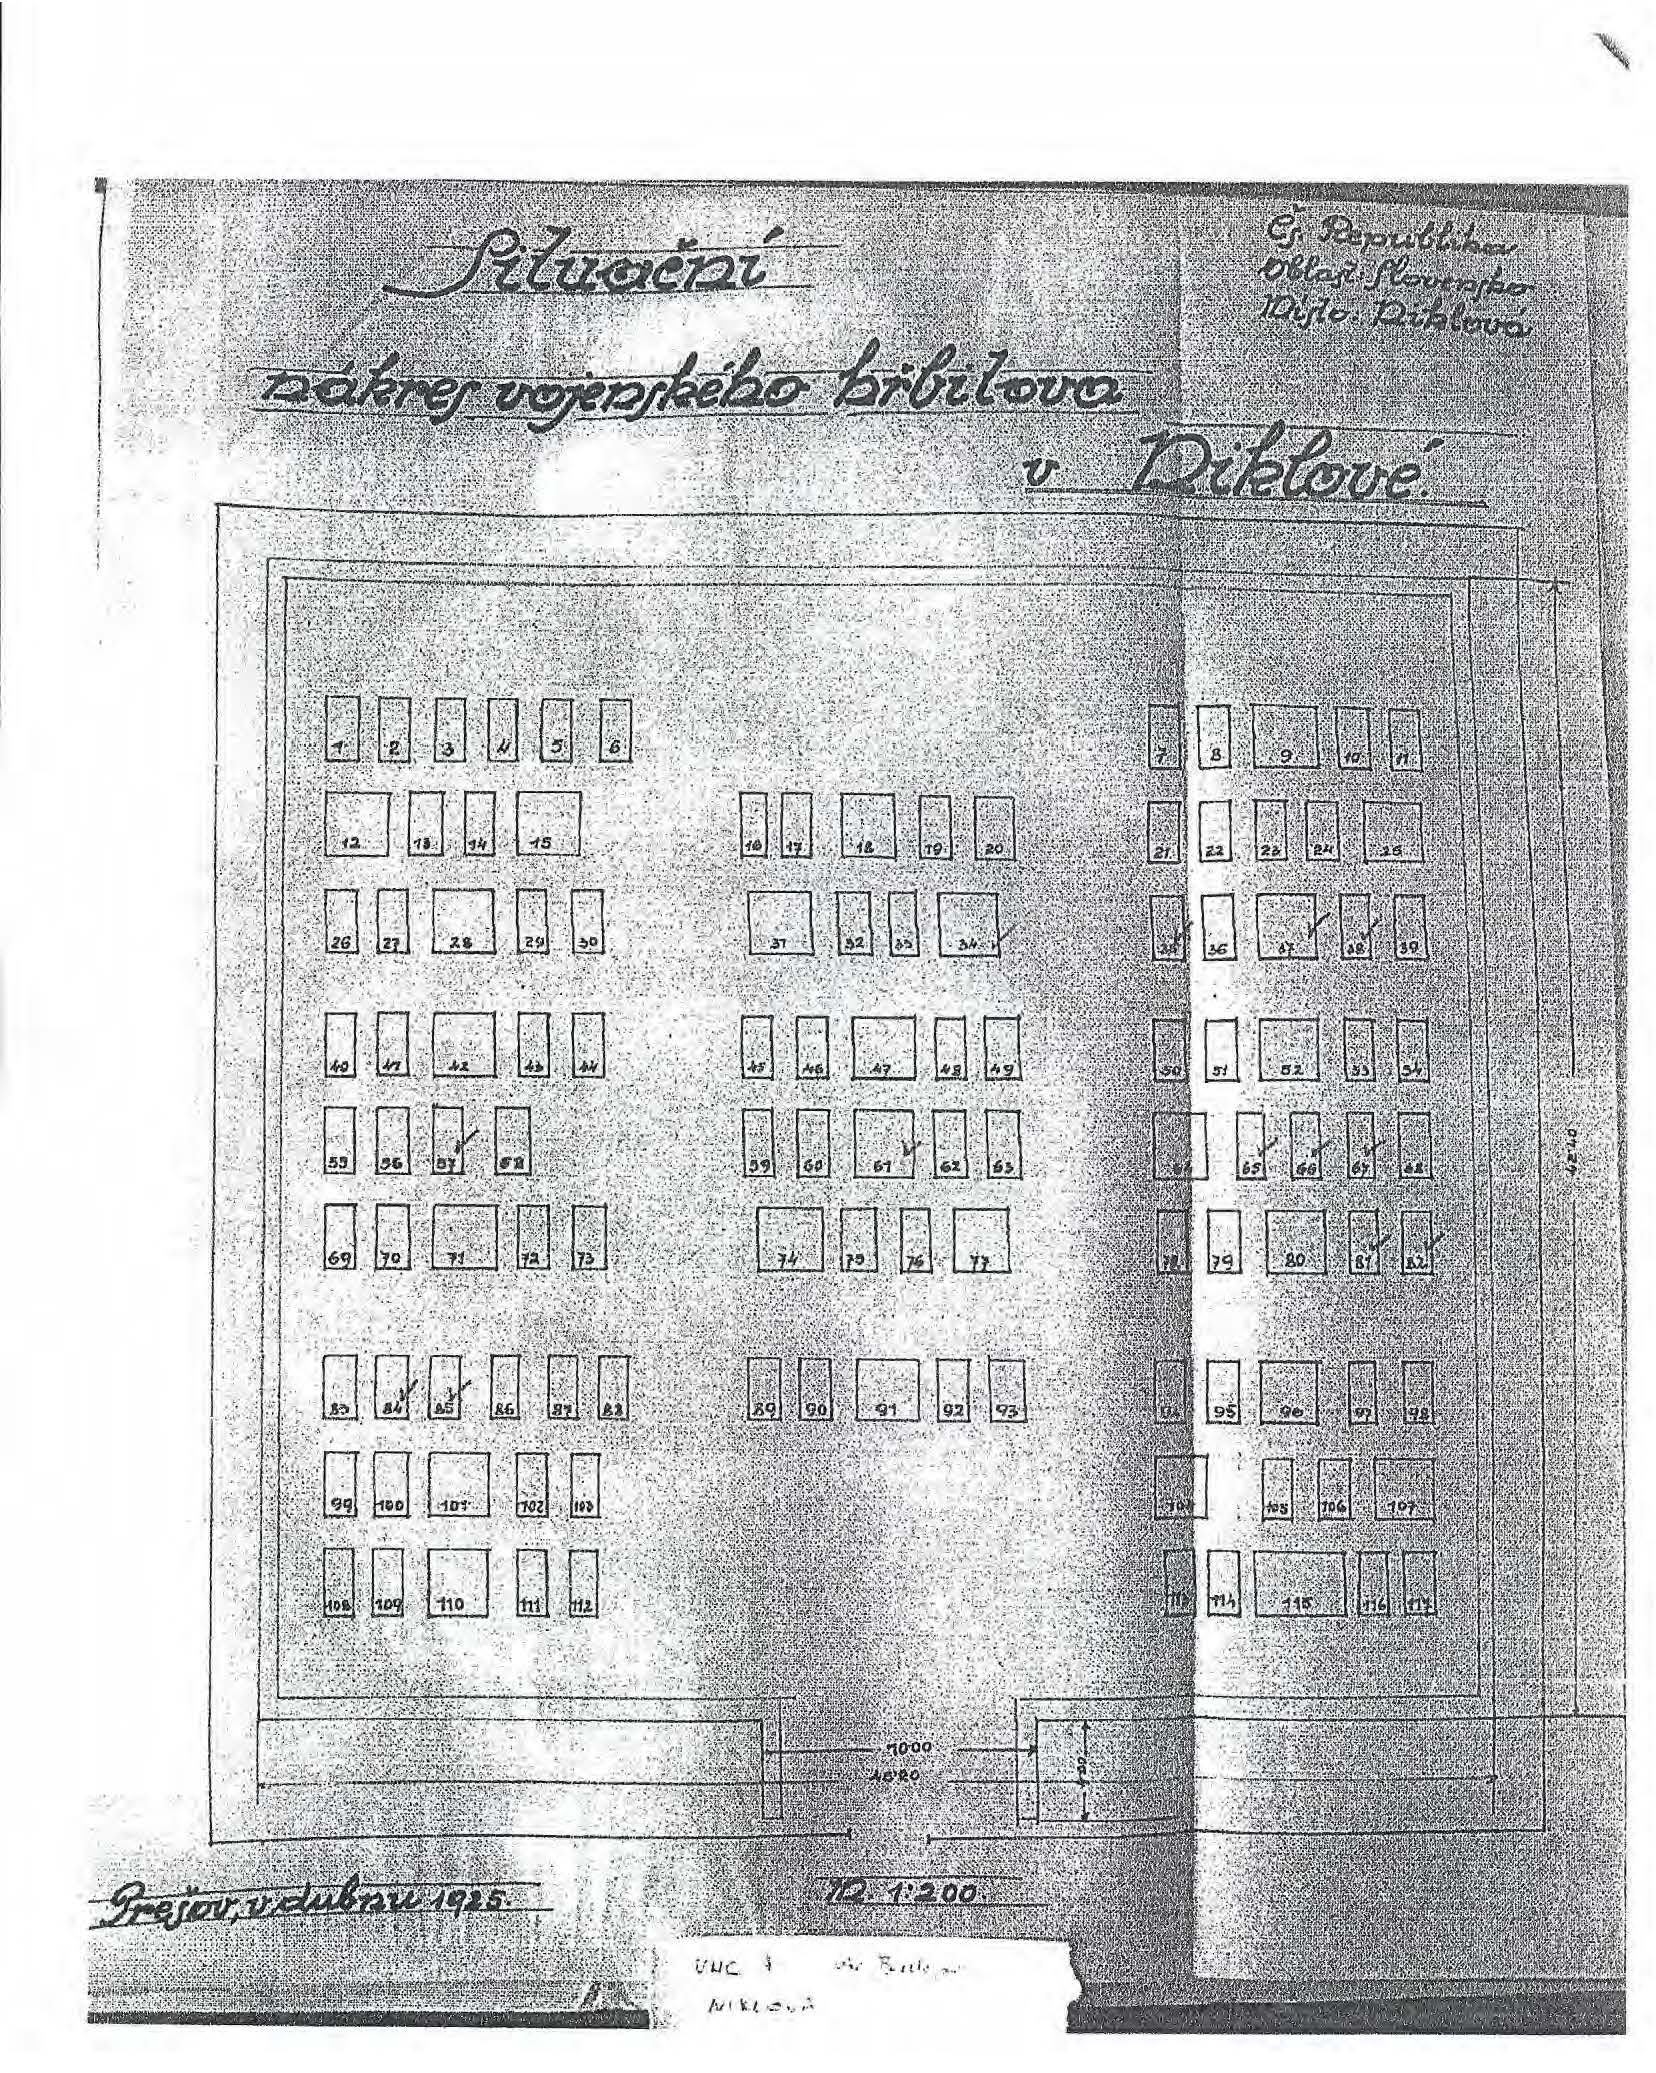 Situační
nákres vojenského hřbitova
v Niklové.
Čs. Republika
Oblast: Slovensko
Místo: Niklová
1 2 3 4 5 6 7 8 9 10 11
12 13 14 15 16 17 18 19 20 21 22 23 24 25
26 27 28 29 30 31 32 33 34 35 36 37 38 39
40 41 42 43 44 45 46 47 48 49 50 51 52 53 54
55 56 57 58 59 60 61 62 63 64 65 66 67 68
69 70 71 72 73 74 75 76 77 78 79 80 81 82
83 84 85 86 87 88 89 90 91 92 93 94 95 96 97 98
99 100 101 102 103 104 105 106 107
108 109 110 111 112 113 114 115 116 117
42·40
10·00
46·20
Prešov, v dubnu 1925.
M. 1:200.
VHC
NIKLOVÁ